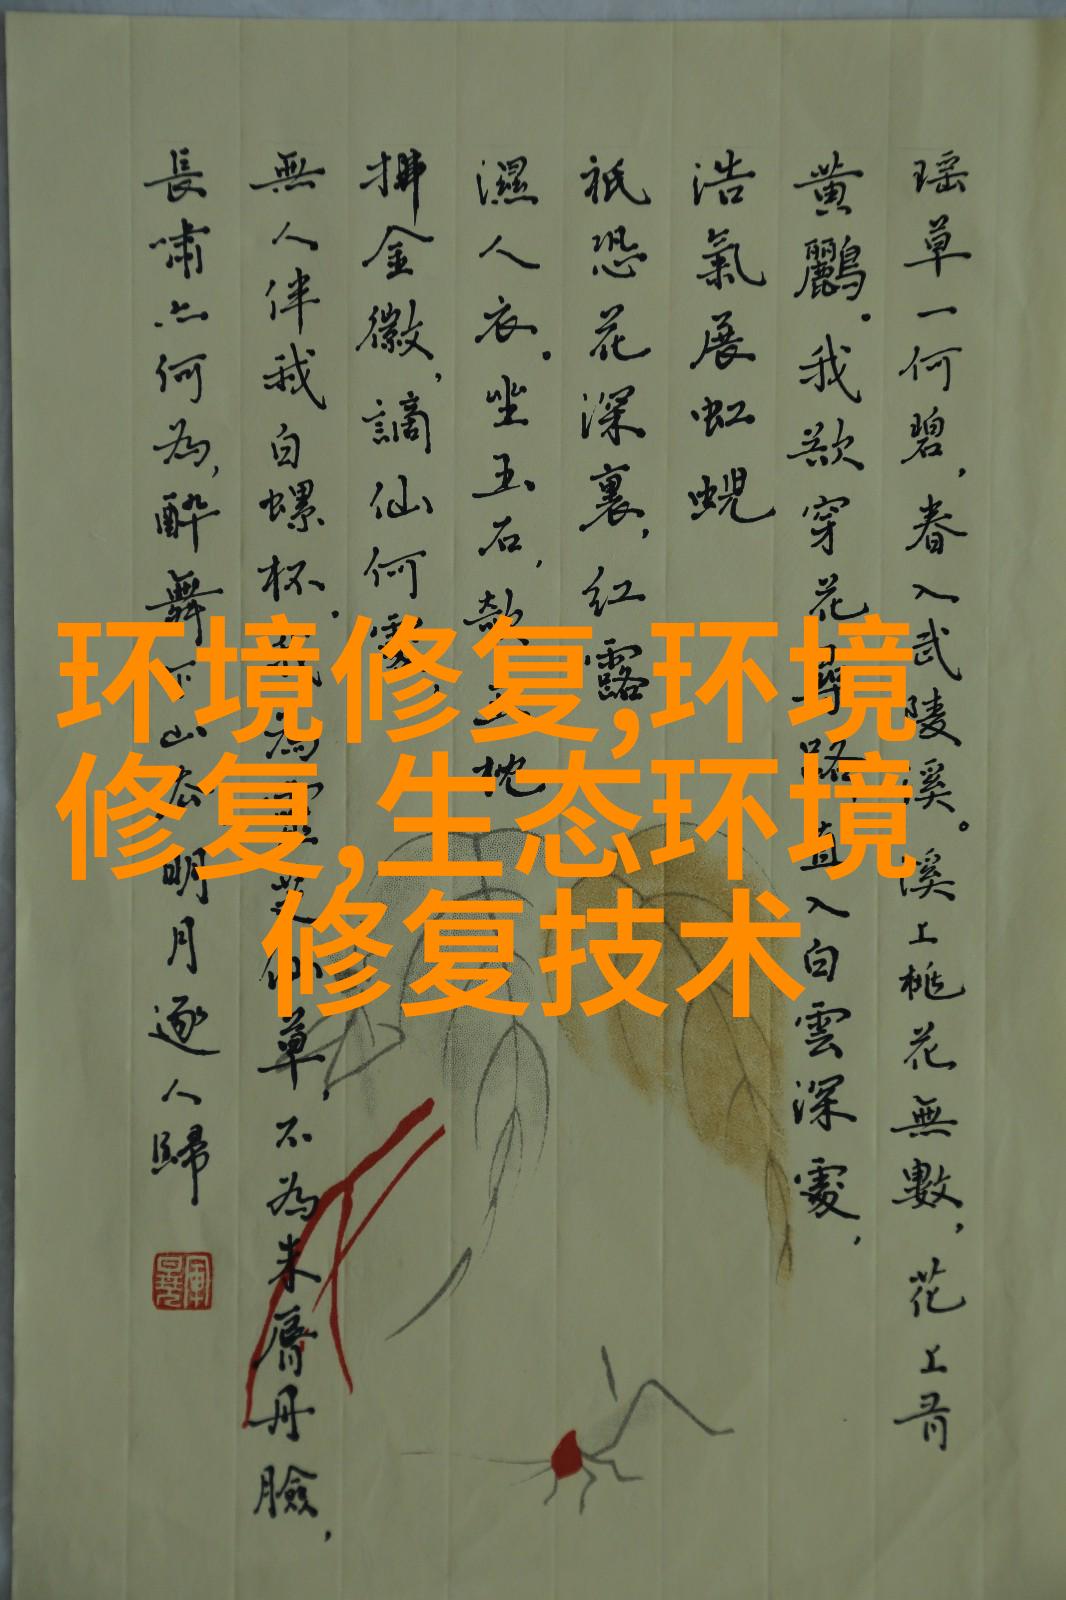 瑶草一何碧，春入武陵溪。溪上桃花無數，花上有
黄鸝。我欲穿花尋路直入白雲深處，
浩氣展虹蜺
祇恐花深裏，紅露
濕人衣。坐玉石，欹玉枕
拂金徽，謫仙何處，
無人伴我白螺杯。我為靈芝仙草，不為朱脣丹臉，
長嘯亦何為，醉舞下山去明月逐人歸
环境修复,环境
修复,生态环境
修复技术